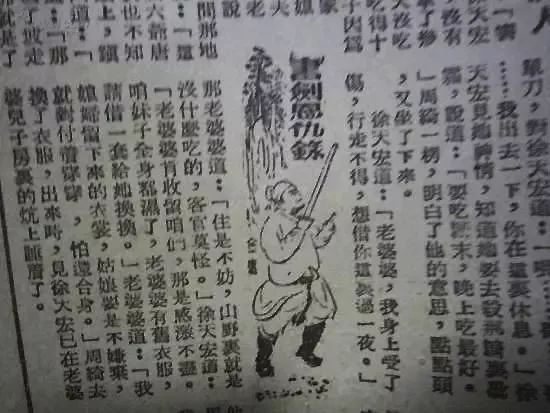 人
徐天宏
沒有
沒吃
吃得十
子因爲
說
間那地
六爺唐
也不知
道：「
「那
單刀，對徐天宏道：「
……我出去一下，你在這裏休息。」徐
天宏見她神情，知道她要去殺
霜，說道：「要吃野味，晚上吃最好。
」周綺一楞，明白了他的意思，點點頭
，又坐了下來。
徐天宏道：「老婆婆，我身上受了
傷，行走不得，想借你這裏過一夜。」
書劍恩仇錄
金庸
那老婆婆道：「住是不妨，山野裏就是
沒什麼吃的，客官莫怪。」徐天宏道：
「老婆婆肯收留咱們，那是感激不盡。
咱妹子全身都濕了，老婆婆有舊衣服，
請借一套給她換換。」老婆婆道：「我
媳婦留下來的衣裳，姑娘要是不嫌棄，
就對付着穿穿，怕還合身。」周綺去
換了衣服，出來時，見徐天宏已在老婆
婆兒子房裏的炕上睡着了。